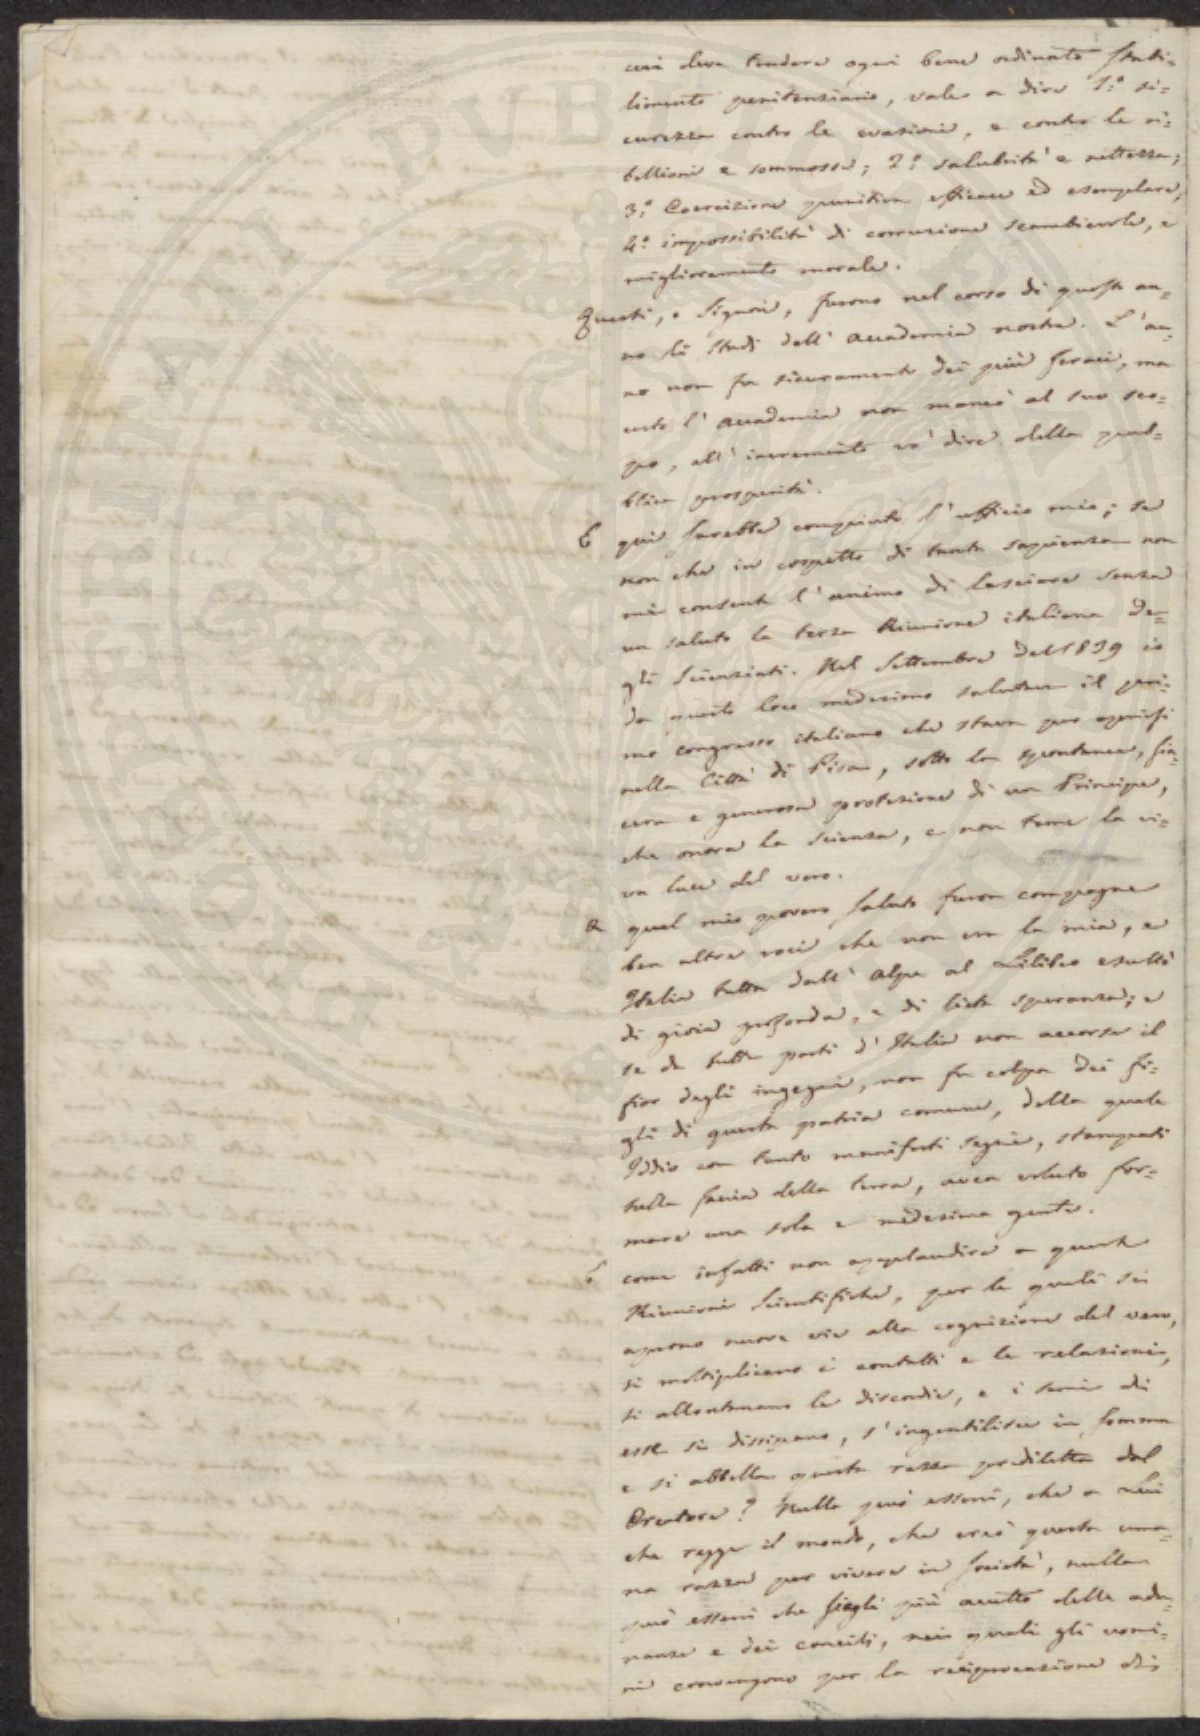 cui deve tendere ogni bene ordinato stabi=
limento penitenziario, vale a dire 1:° si=
curezza contro le evasioni, e contro le ri=
bellioni e sommosse; 2:° salubrità e nettezza;
3:° Coercizione punitiva efficace ed esemplare;
4:° impossibilità di corruzione scambievole, e
miglioramento morale.
Questi, o Signori, furono nel corso di quest' an=
no li studi dell' Accademia nostra. L' an=
no non fu sicuramente dei più feraci, ma
certo l' Accademia non mancò al suo sco=
po, all' incremento vo' dire della pub=
blica prosperità.
E qui sarebbe compiuto l' ufficio mio; se
non che in cospetto di tanta sapienza non
mi consente l' animo di lasciare senza
un saluto la terza Riunione italiana de=
gli Scienziati. Nel Settembre del 1839 io
da questo loco medesimo salutava il pri=
mo congresso italiano che stava per aprirsi
nella Città di Pisa, sotto la spontanea, sin=
cera e generosa protezione di un Principe,
che onora la scienza, e non teme la vi=
va luce del vero.
A quel mio povero saluto furon compagne
ben altre voci che non era la mia, e
Italia tutta dall' Alpe al Lilibeo esultò
di gioia profonda, e di lieta speranza; e
se da tutte parti d' Italia non accorse il
fior degli ingegni, non fu colpa dei fi=
gli di questa patria comune, della quale
Iddio con tanto manifesti segni, stampati
sulla faccia della terra, avea voluto for=
mare una sola e medesima gente.
E come infatti non applaudire a queste
Riunioni Scientifiche, per le quali si
aprono nuove vie alla cognizione del vero,
si moltiplicano i contatti e le relazioni,
si allontanano le discordie, e i semi di
esse si dissipano, s' ingentilisce in somma
e si abbella questa razza prediletta dal
Creatore? Nulla può esservi, che a Lui
che regge il mondo, che creò questa uma=
na razza per vivere in società, nulla
può esservi che siegli più accetto delle adu=
nanze e dei concilj, nei quali gli uomi=
ni convengono per la reciprocazione di
PERINATI PUBLICE